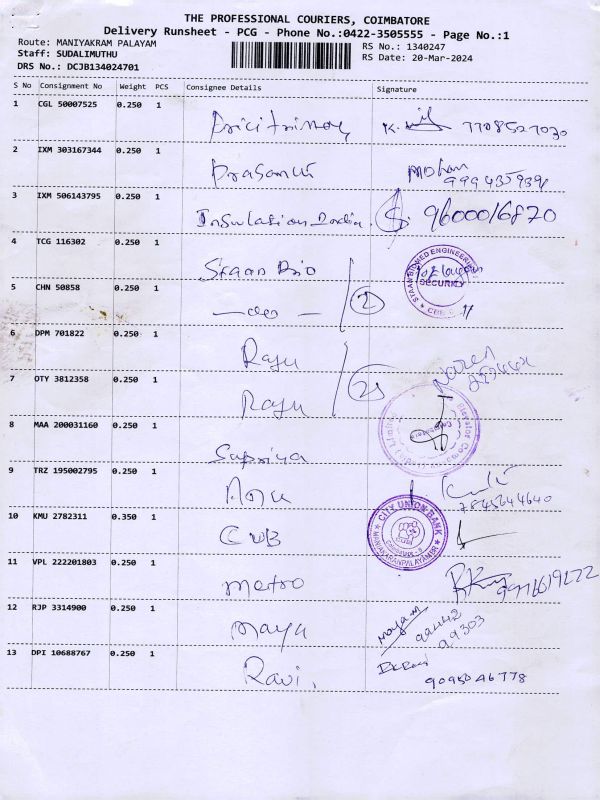 THE PROFESSIONAL COURIERS, COIMBATORE
Delivery Runsheet - PCG - Phone No.:0422-3505555 - Page No.:1
Route: MANIYAKRAM PALAYAM
RS No.: 1340247
Staff: SUDALIMUTHU
RS Date: 20-Mar-2024
DRS No.: DCJB134024701
S No Consignment No Weight PCS Consignee Details Signature
1 CGL 50007525 0.250 1
2 IXM 303167344 0.250 1 Prasanth Mohan
3 IXM 506143795 0.250 1 Insulation India 9600016870
4 TCG 116302 0.250 1 Staan Bio
STAAN BIOMED ENGINEERING
SECURITY
5 CHN 50858 0.250 1 — do — 2
6 DPM 701822 0.250 1 Raju
7 OTY 3812358 0.250 1 Raju
8 MAA 200031160 0.250 1 Supriya
9 TRZ 195002795 0.250 1
7845644640
10 KMU 2782311 0.350 1 CUB
CITY UNION BANK
CUB
11 VPL 222201803 0.250 1 metro
12 RJP 3314900 0.250 1 Maya Maya M
99303
13 DPI 10688767 0.250 1 Ravi.
9095046778